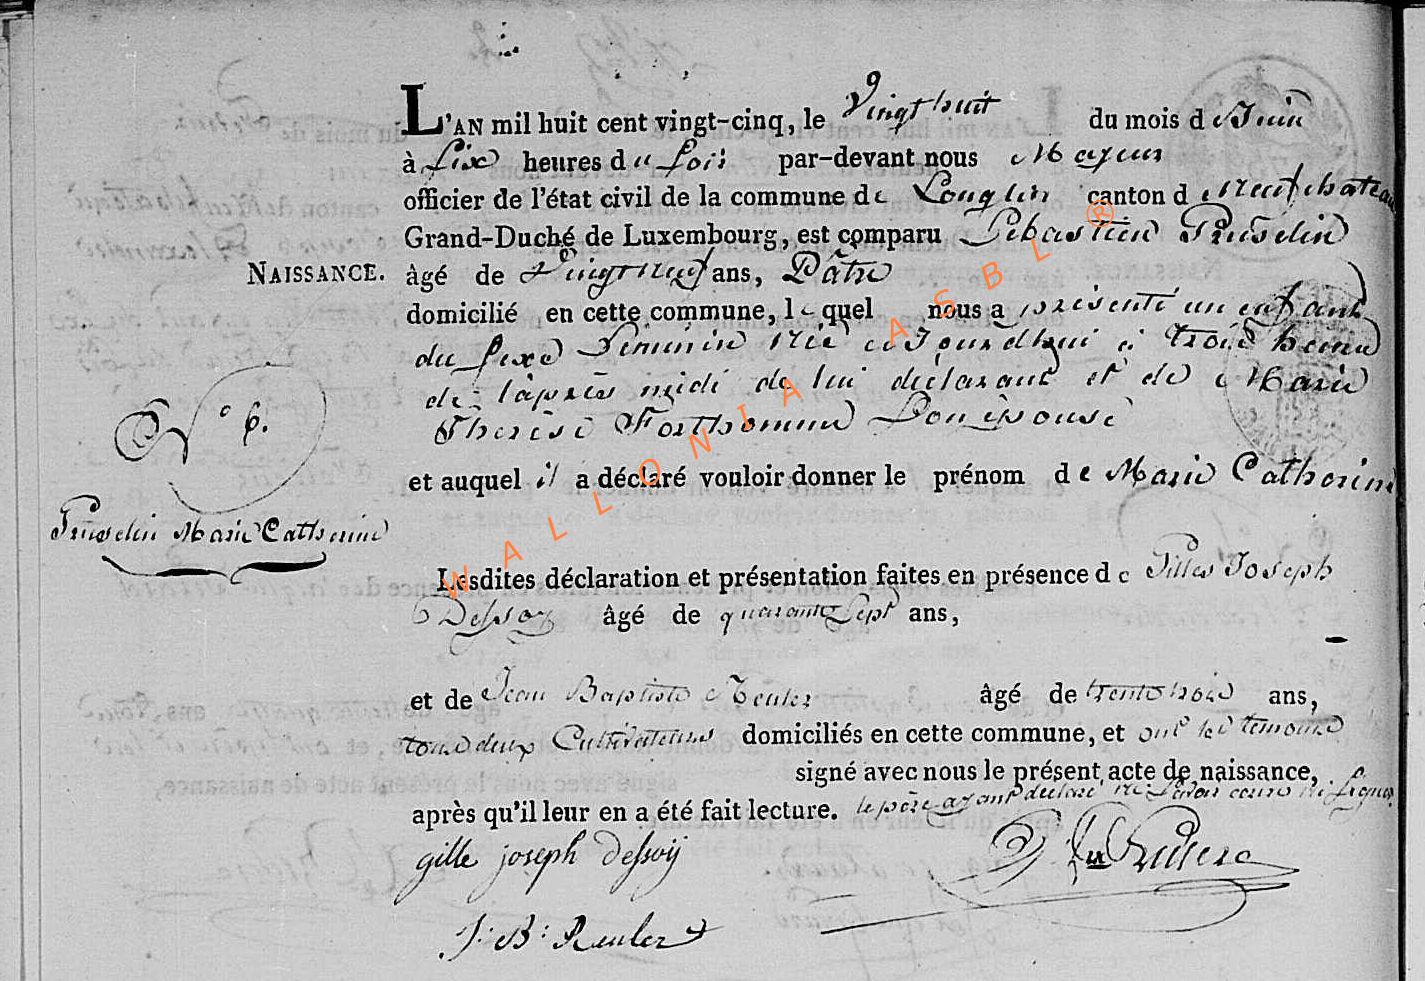 L'AN mil huit cent vingt-cinq, le Vingt huit du mois de Juin
à six heures du soir par-devant nous Mayeur
officier de l'état civil de la commune de Longlier canton de Neufchateau
Grand-Duché de Luxembourg, est comparu Sebastien Pruselin
NAISSANCE. âgé de Vingt neuf ans, Pâtre
domicilié en cette commune, lequel nous a présenté un enfant
du sexe Feminin née aujourdhui à trois heures
de l'après midi de lui déclarant et de Marie
Thérèse Forthomme Son épouse
N° 6.
et auquel il a déclaré vouloir donner le prénom de Marie Catherine
Pruselin Marie Catherine
Lesdites déclaration et présentation faites en présence de Gilles Joseph
Dessoy âgé de quarante Sept ans,
et de Jean Baptiste Reuler âgé de trente trois ans,
tous deux Cultivateurs domiciliés en cette commune, et ont les temoins
signé avec nous le présent acte de naissance,
après qu'il leur en a été fait lecture. le père ayant declaré ne signer.
gille joseph Dessoÿ
J: B: Reuler
WALLONIA ASBL ®